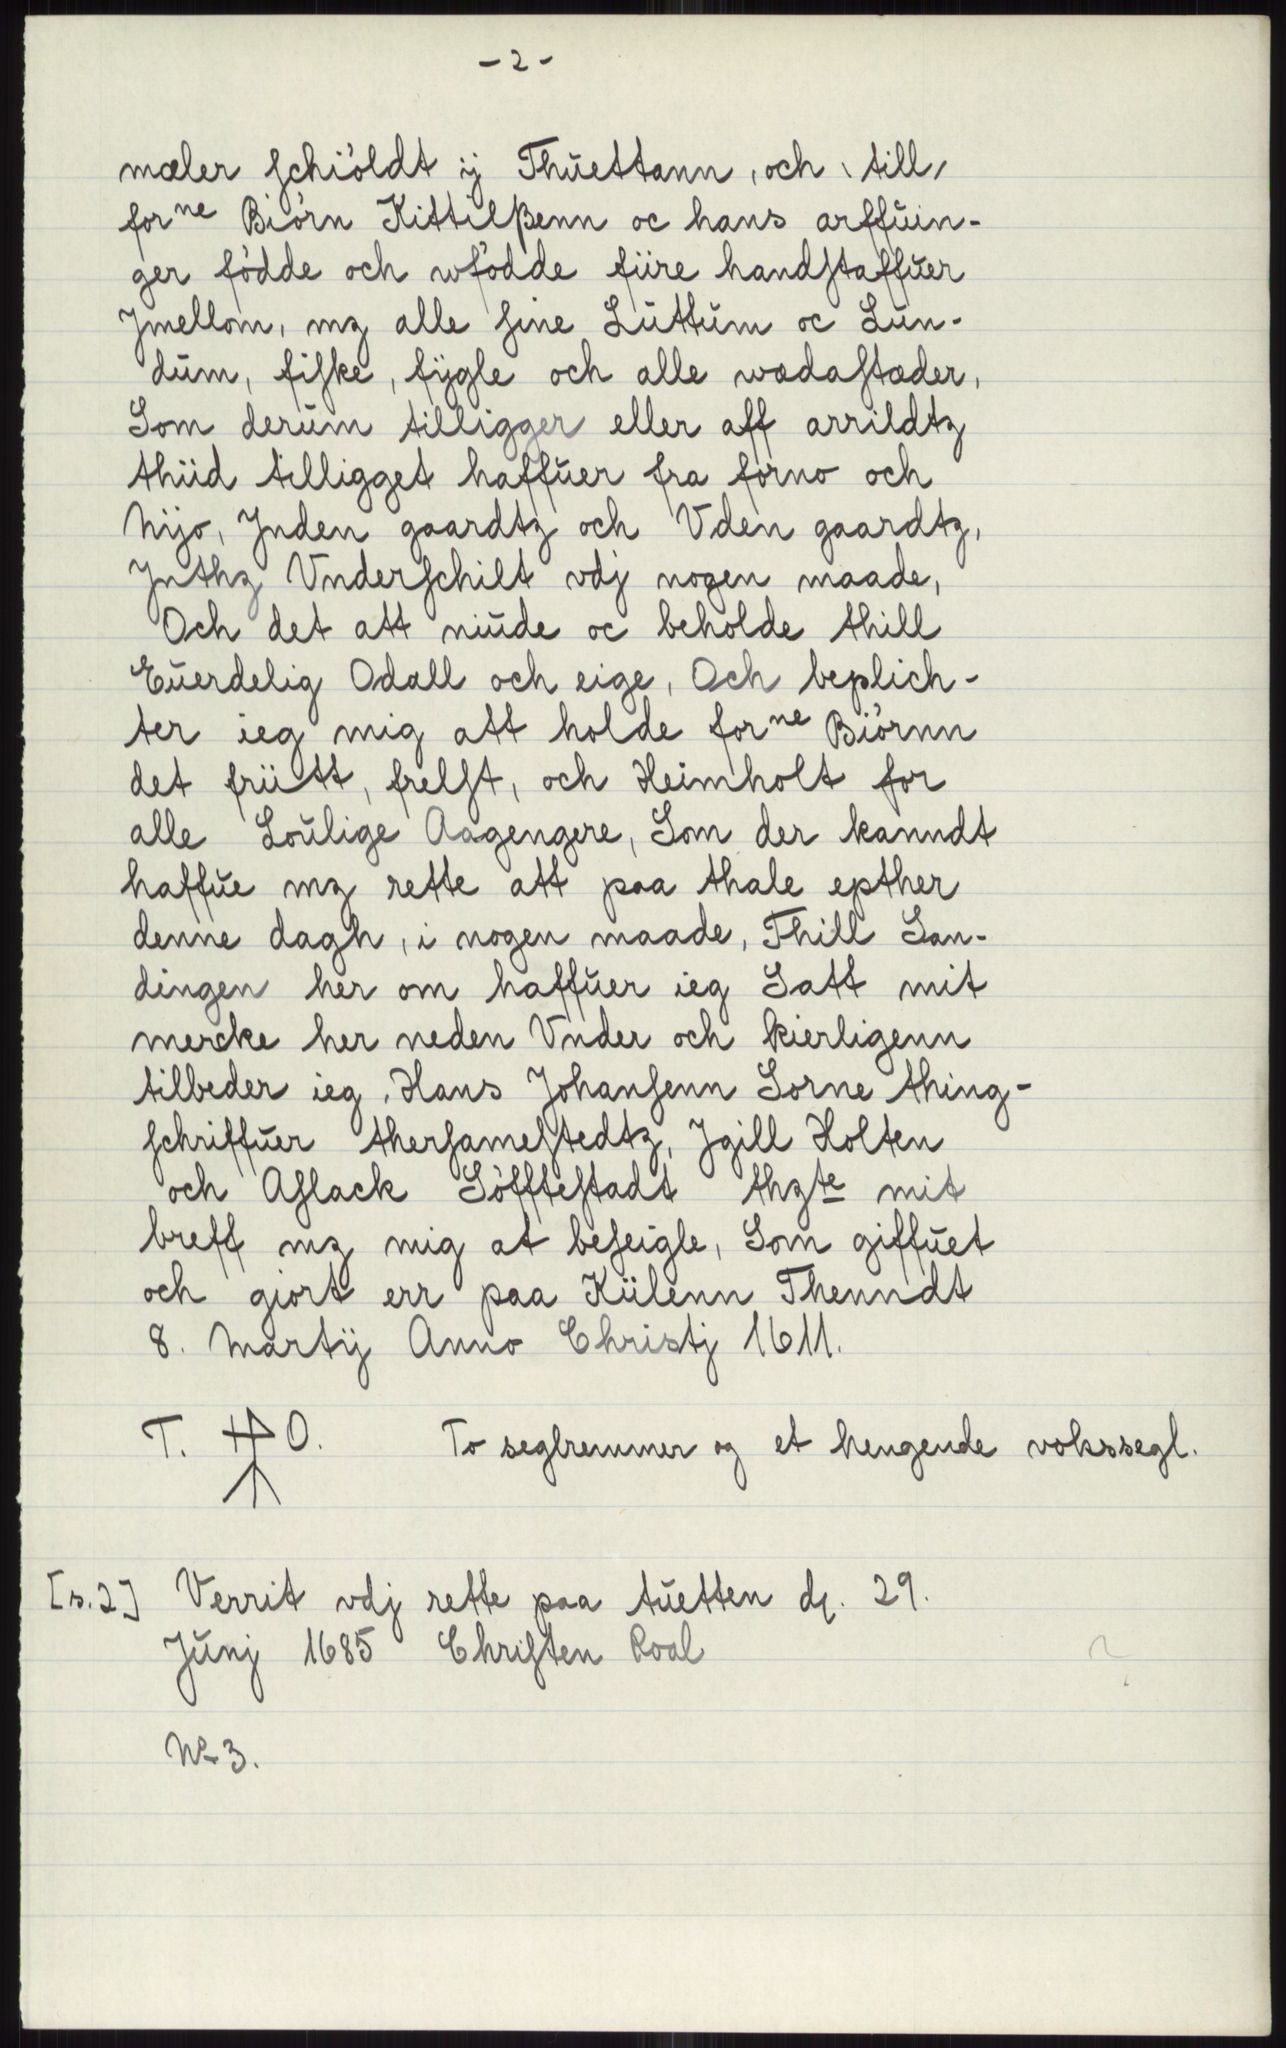 - 2 -
mæler schiöldt ij Thuettann, och, till,
forne Biörn Kittilßenn oc hans arffuin-
ger födde och wfödde fiire handstaffuer
Jmellom, mz alle sine Luttum oc Lun-
dum, fiske, fÿgle och alle wædastæder,
Som derum tilligger eller aff arrildtz
thiid tilligget haffuer fra forno och
Nijo, Jnden gaardtz och Vden gaardtz,
Jnthz Vnderschilt vdj nogen maade,
Och det att niude oc beholde thill
Euerdelig Odall och eige, Och beplich-
ter ieg mig att holde forne Biörnn
det friitt, frelst, och Heimholt for
alle Loulige Aagengere, Som der kanndt
haffue mz rette att paa thale epther
denne dagh, i nogen maade, Thill San-
dingen her om haffuer ieg Satt mit
mercke her neden Vnder och kierligenn
tilbeder ieg, Hans Johansenn Sorne thing-
schriffuer thersamestedtz, Jgill Holten
och Aslack Söfftestadt thzte mit
breff mz mig at beseigle, Som giffuet
och giort err paa Kiilenn Thenndt
8. Martij Anno Christj 1611.
T. O. To seglremmer og et hengende vokssegl.
[s.2] Verrit vdj rette paa tuetten d. 29.
Junj 1685 Christen Roal
No 3.